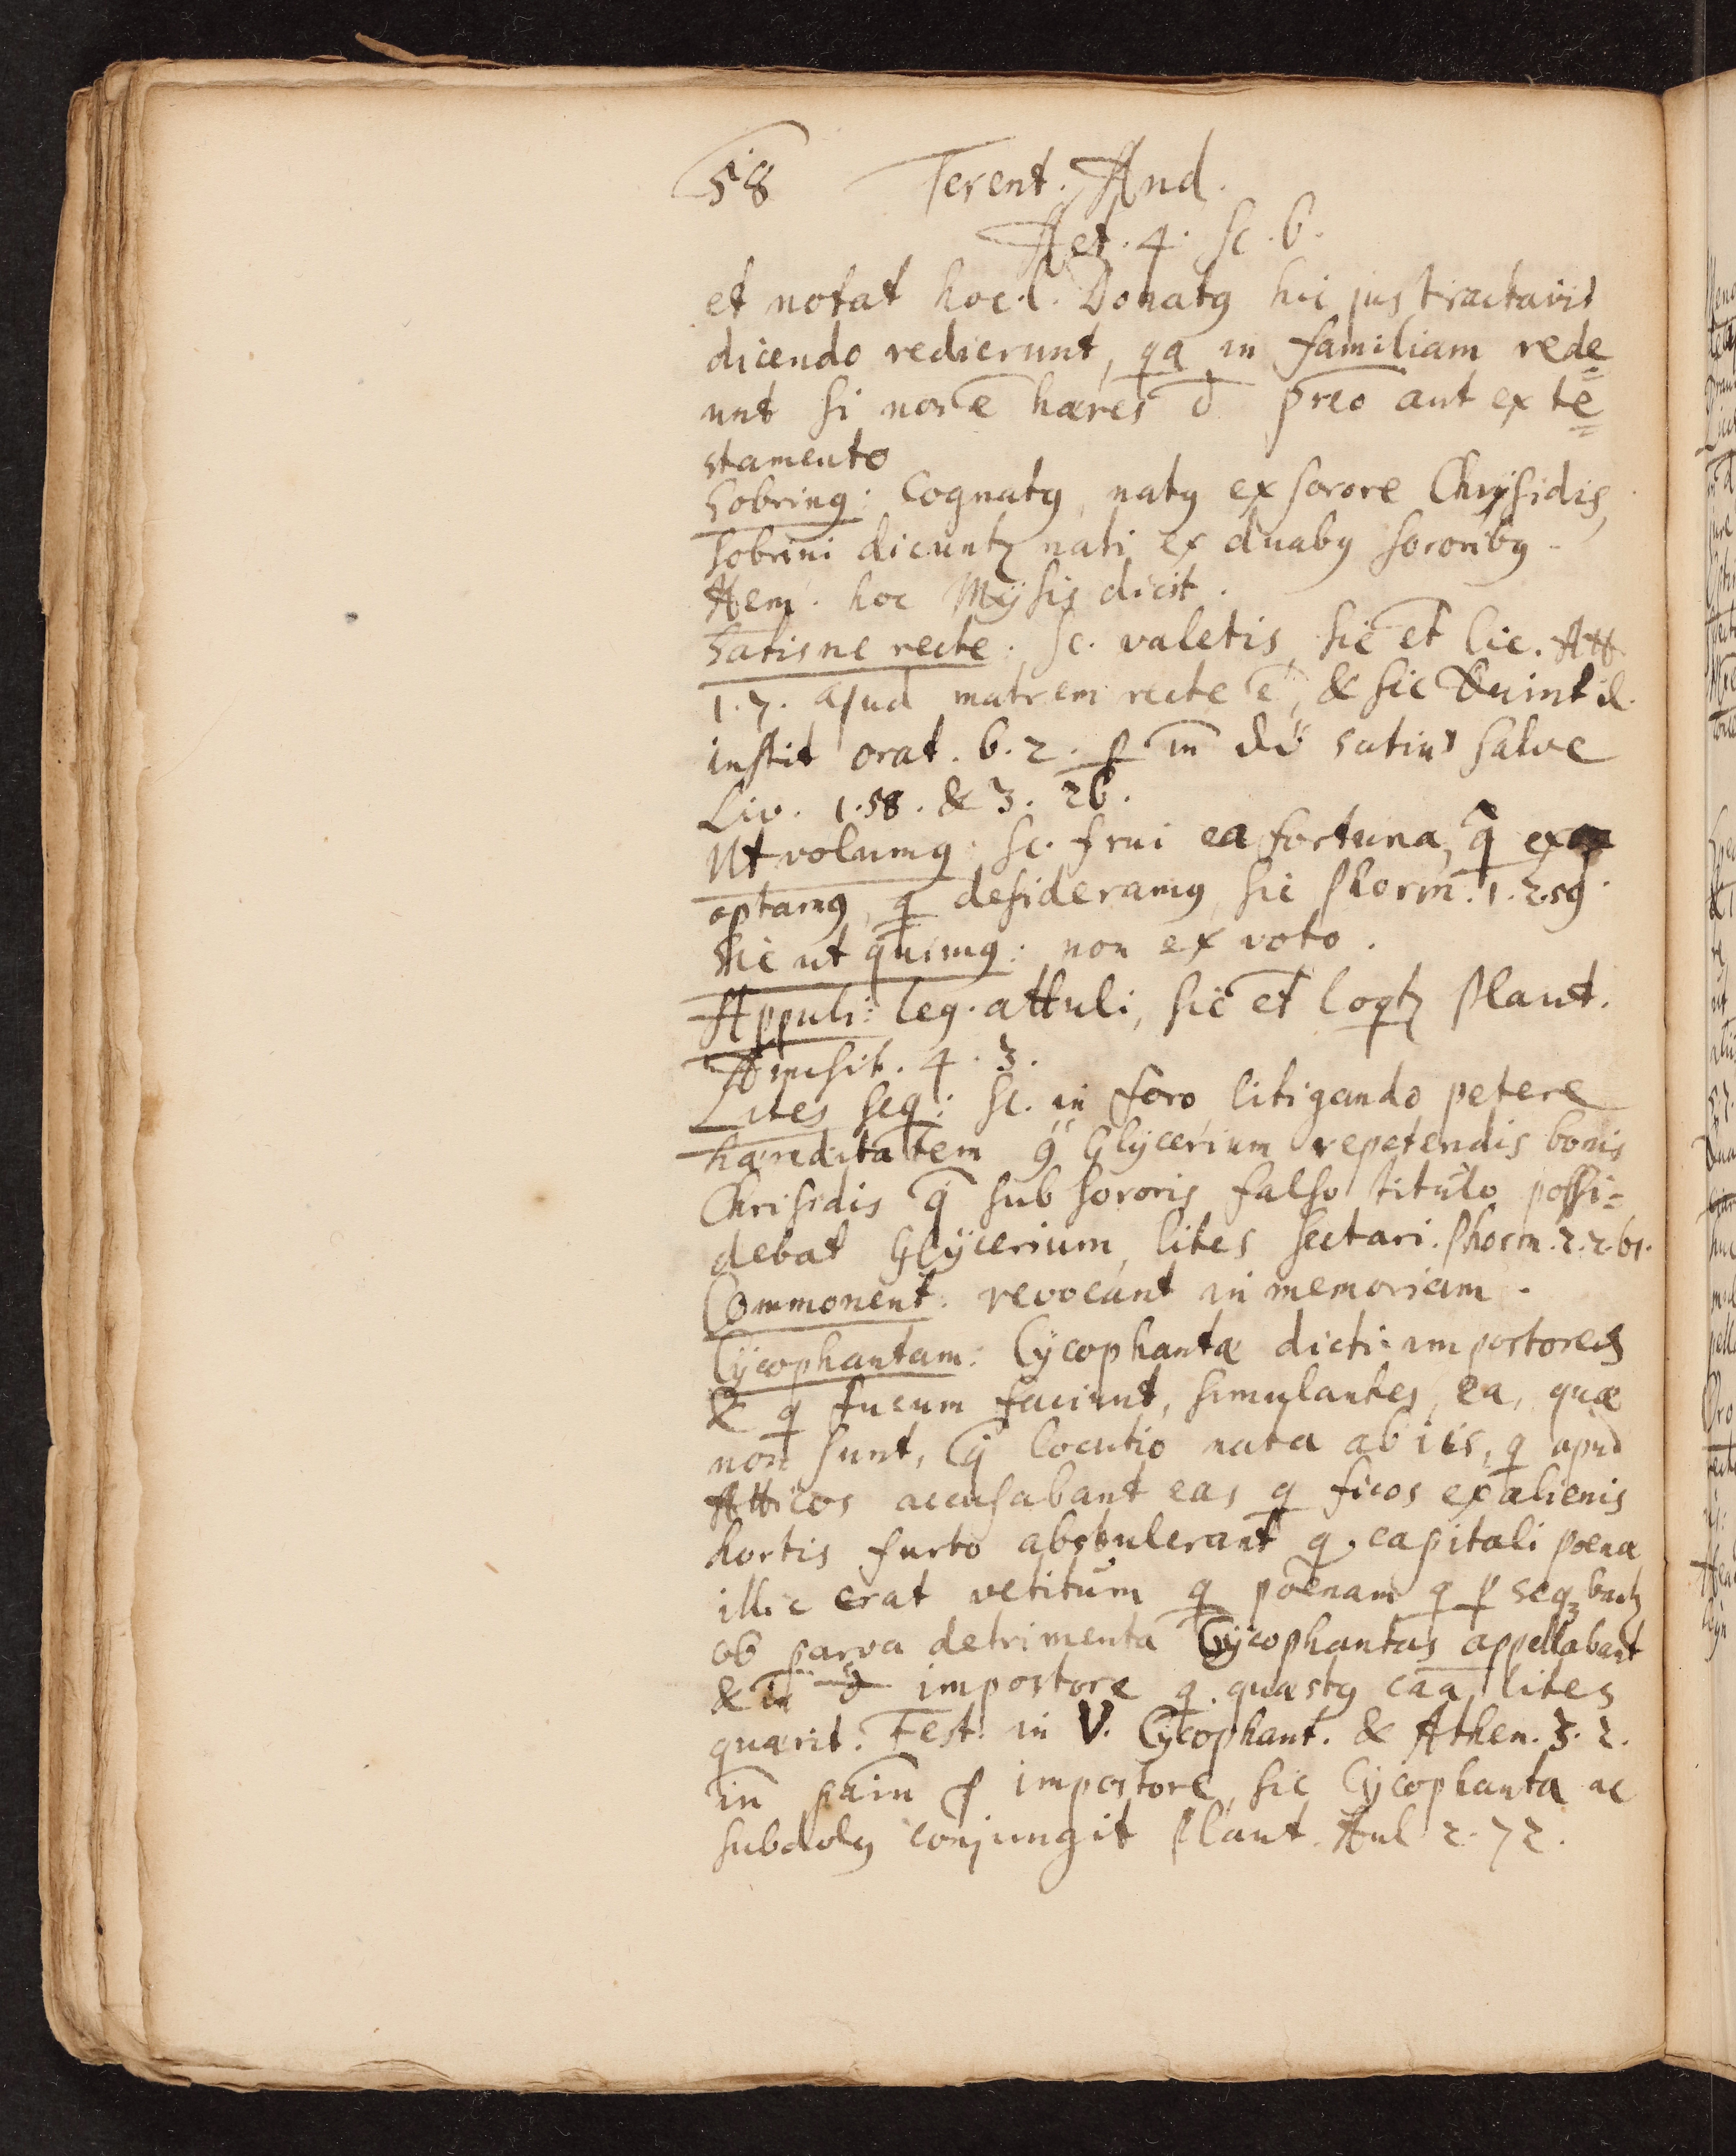 58 Terent. And.
Act. 4. Sc. 6.
et notat hoc l. Donatꝰ hic jus tractavit
dicendo redierunt, qa in familiam rede
unt si non ē hæres ō prio aut ex te
stamento
Sobrinꝰ: Cognatꝰ, natꝰ ex sorore Chrÿsidis,
Sobrini dicuntr nati ex duabꝰ sororibꝰ.
Hem. hoc Mÿsis dicit.
Satisne recte. Sc. valetis, sic et Cic. Att.
1.7. apud matrem recte ē, & sic Quintil.
instit orat. 6.2. satin salve
Liv. 1.58. & 3. 26.
Ut volumꝰ: Sc. frui ea fortuna, q̄
optamꝰ, q desideramꝰ, sic Phorm. 1.2.59.
Sic ut quimꝰ: non ex voto.
Appuli: leg. attuli, sic et loqtr Plaut.
Amphit. 4.3.
Lites seq: Sc. in foro litigando petere
hæreditatem Glÿcerium repetendis bonis
Chrisidis q̄ sub sororis falso titulo possi=
debat Glÿcerium, lites sectari. Phorm. 2.2.61.
Commonent. revocant in memoriam.
Cÿcophantam: Cÿcophantæ dicti impostores
& q fucum faciunt, simulantes, ea, quæ
non sunt, locutio nata ab iis, q apud
Atticos accusabant eas q ficos ex alienis
hortis furto abstulerant q. capitali poena
illic erat vetitum q poenam q ꝑ seqbantr
ob parva detrimenta Cÿcophantas appellabant
& in impostore q. quæstꝰ caā lites
quærit. Fest. in V. Cÿcophant. & Athen. 3.2.
impostore, sic Cÿcophanta ac
subdolꝰ conjungit Plaut. Aul 2.72.